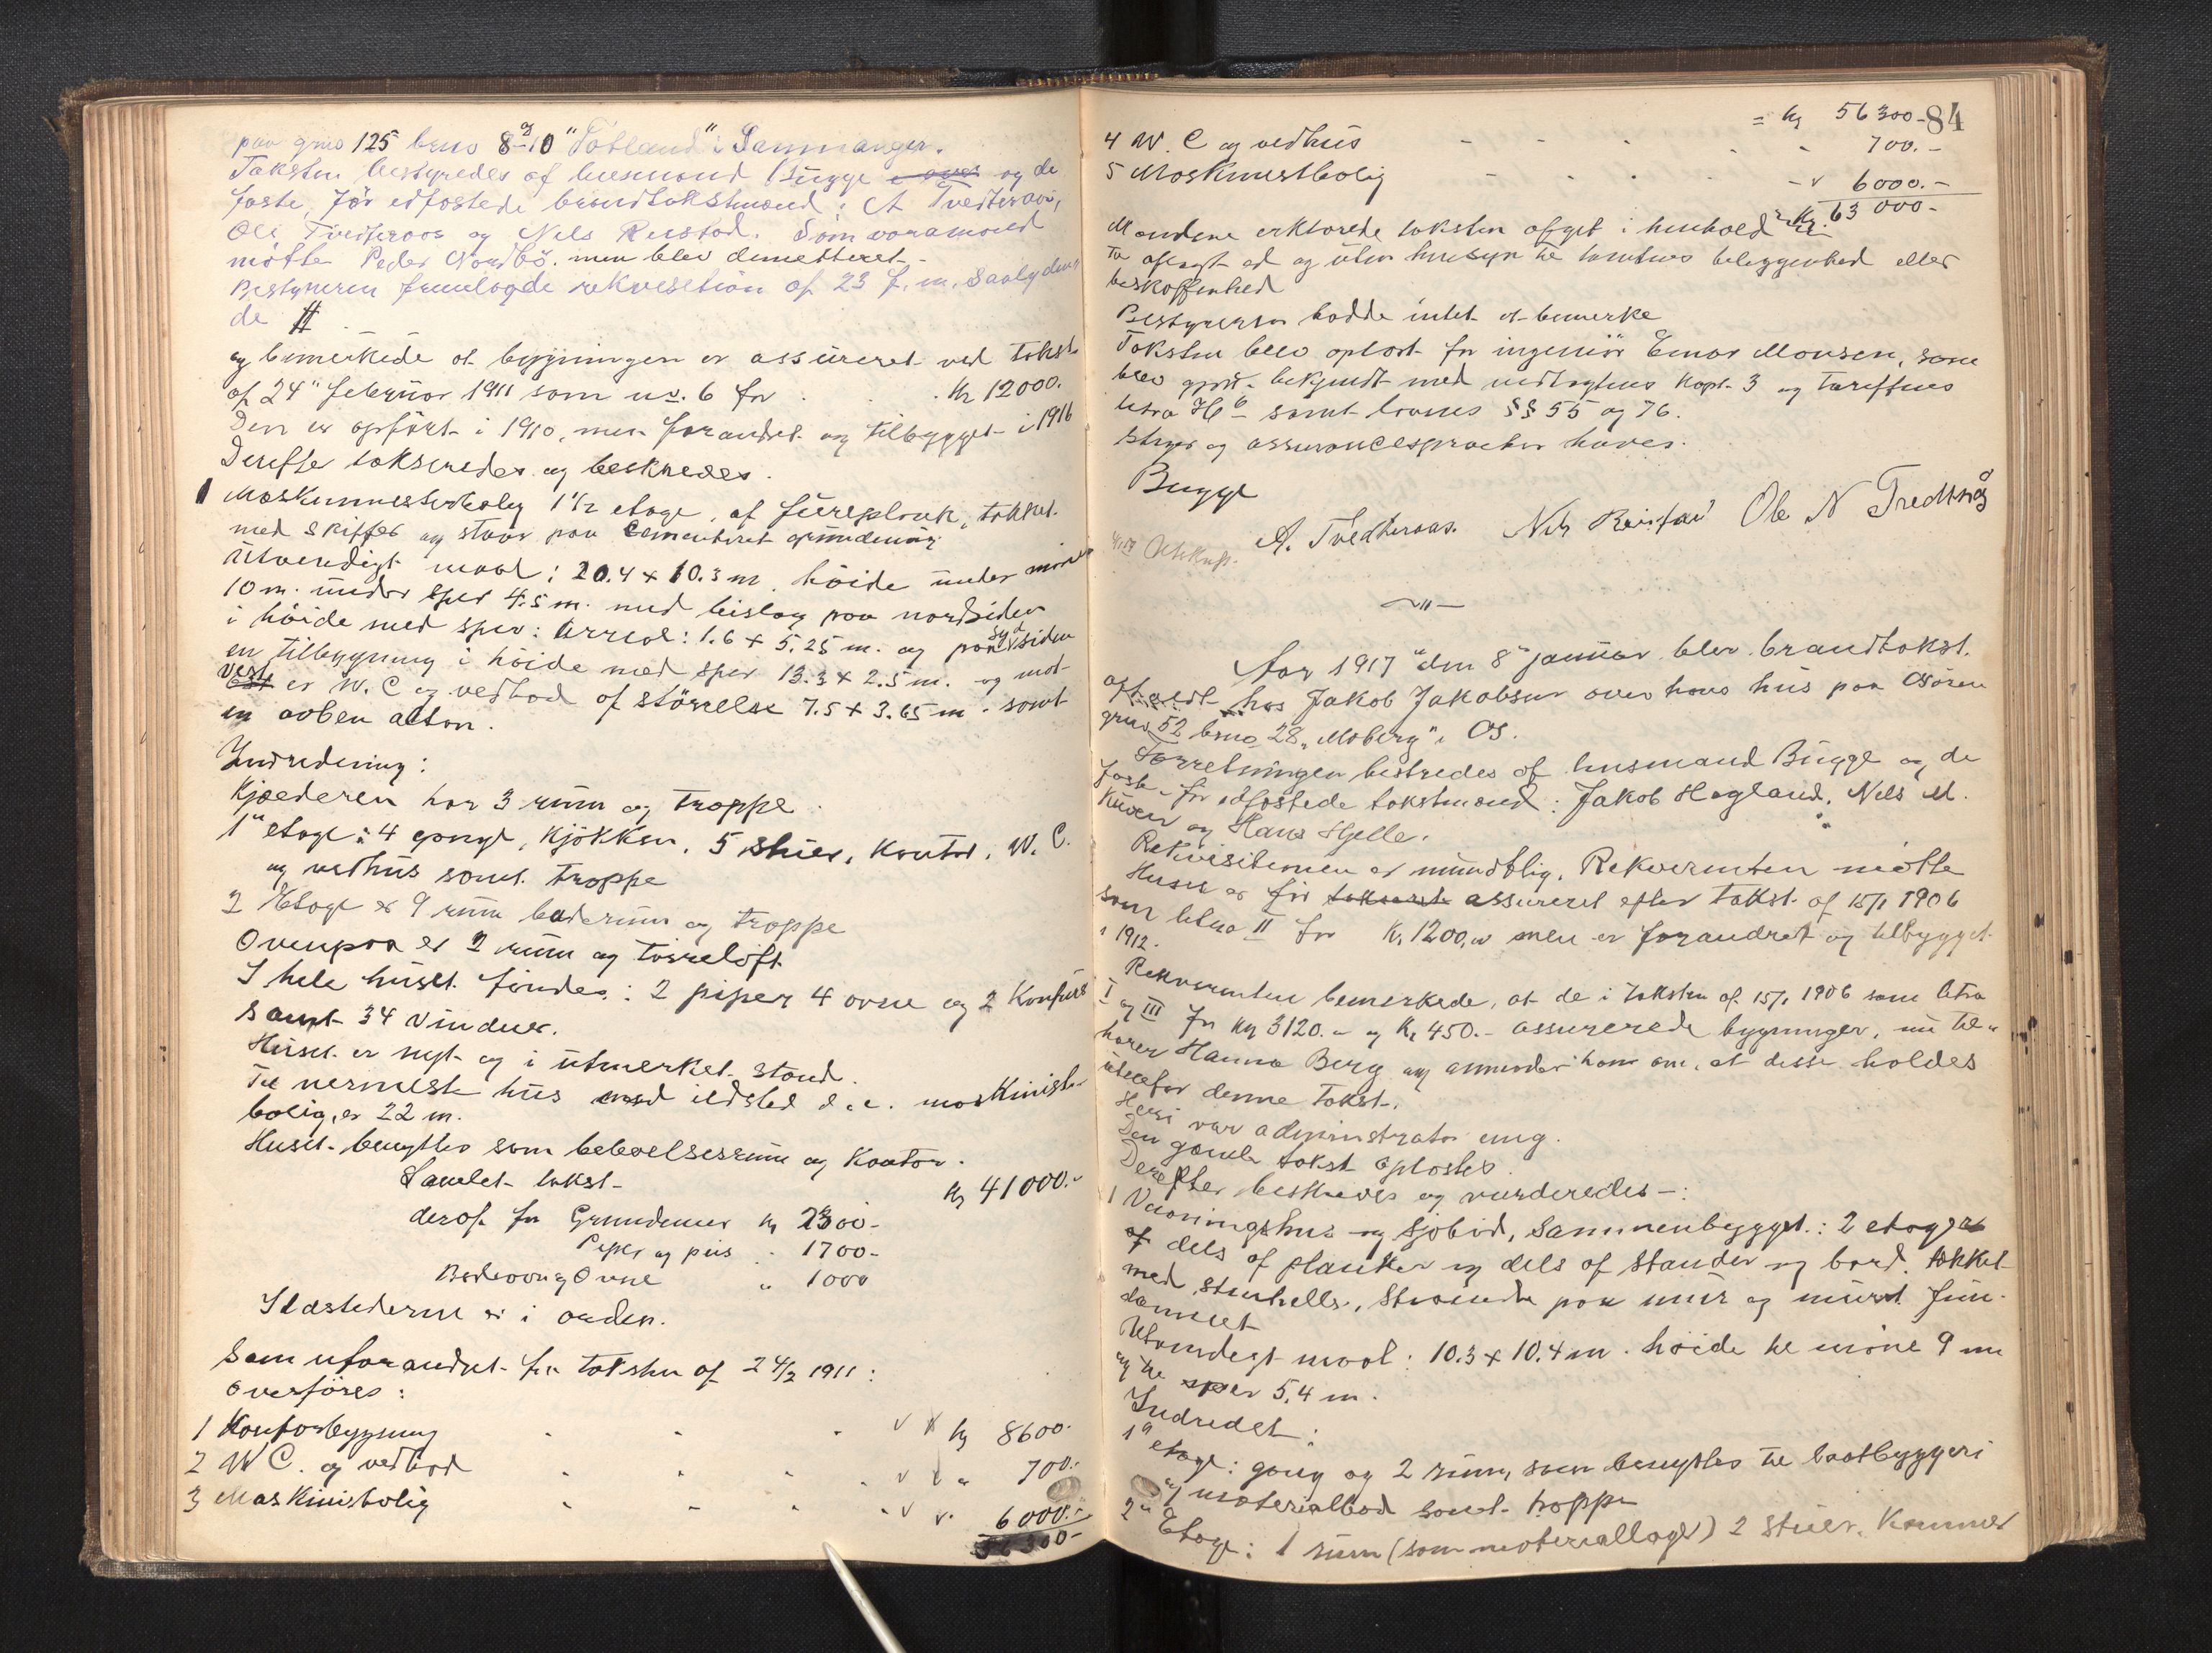 paa gnr 125 brno 8 og 10 "Totland" i Samnanger.
Taksten bestyredes af lensmand Bugge og de
faste, før edfæstede brandtakstmænd: A Tvedteraas,
Ole Tvedteraas og Nels Reistad. Som varamand
møtte Peder Nordbø. men blev demetteret.
Bestyreren fremlagde rekvisition af 23 f. m. saalyden
de #
og bemerkede at bygningen er assureret ved takst
af 24" februar 1911 som no. 6 for Kr 12000.
Den er opført i 1910, men forandret og tilbygget i 1916
Derefter takseredes og beskrevdes.
1 Maskinmesterbolig 1 1/2 etage, af furuplank, tækket
med skiffer og staar paa cementeret grundmur
Utvendigt maal: 20.4 x 10.3 m. høide under møne
10 m. under sper 4.5 m. med bislag paa nordsiden
i høide med sper: Areal: 1.6 x 5.25 m. og paa sydsiden
en tilbygning i høide med sper 13.3 x 2.5 m. og mot
vest er W. C og vedbod af størrelse 7.5 x 3.65 m. samt
en aaben altan.
Indredning:
Kjælderen har 3 rum og trappe.
1" etage: 4 gange, kjøkken, 5 stuer, kontor, W. C.
og vedhus samt trappe
2 Etage er 9 rum baderum og trappe
Ovenpaa er 2 rum og tørreloft
I hele huset findes: 2 piper 4 ovne og 2 komfurer
samt 34 vinduer.
Huset er nyt og i utmerket stand.
Til nermeste hus med ildsted d. e. maskinist
bolig, er 22 m.
Huset benyttes som beboelsesrum og kontor.
Samlet takst Kr 41000.-
deraf for Grundmur Kr 2300-
Piper og peis " 1700-
Badeovn og Ovne " 1000
Ildstederne er i orden.
Som uforandret fra taksten af 24/2 1911:
overføres:
1 Kontorbygning Kr 8600.-
2 W C. og vedbod " 700.-
3 Maskinistbolig " 6000.-
= Kr 56300-
84
4 W. C og vedhus 700.-
5 Maskinistbolig 6000.-
Kr. 63 000-
Mændene erklærede taksten afgit i henhold
til aflagt ed og uten hensyn til tomtens beliggenhed eller
beskaffenhed
Bestyreren hadde intet at bemerke
Taksten blev oplæst for ingeniør Einar Monsen, som
blev gjort bekjendt med vedtægtens kapt. 3 og tariffens
litra H6 samt lovens §§ 55 og 76.
Stiger og assurancesprøiter haves.
Bugge
A. Tvedteraas. Nils Reistad Ole N Tvedterås
Utskrift.
—"—
Aar 1917 den 8" januar blev brandtakst
afholdt hos Jakob Jakobsen over hans hus paa Osøren
gnr 52 brno 28 "Moberg" i Os.
Forretningen bestredes af lensmand Bugge og de
faste før edfæstede takstmænd: Jakob Hagland, Nels M.
Kuven og Hans Hjelle.
Rekvisitionen er mundtlig. Rekvirenten møtte
Huset er før takseret assureret efter takst af 15/1 1906
som litra II for Kr 1200.- men er forandret og tilbygget
i 1912.
Rekvirenten bemerkede, at de i taksten af 15/1 1906 som litra
I og III for Kr 3120.- og Kr 450.- assurerede bygninger, nu til-
hører Hanna Berg og anmoder han om, at disse holdes
utenfor denne takst.
Heri var administrator enig.
Den gamle takst oplæstes.
Derefter beskreves og vurderedes-:
1 Vaaningshus og sjøbod, sammenbygget: 2 etager
af dels af planker og dels af stander og bord, tækket
med stenheller, staaende paa mur og muret fun-
dament
Utvendigt maal: 10.3 x 10.4 m. høide til møne 9 m
og til sper 5.4 m.
Indredet:
1" etage: gang og 2 rum, som benyttes til baatbyggeri
og materialbod samt trappe
2" Etage: 1 rum (som materiallager) 2 stuer, kammer